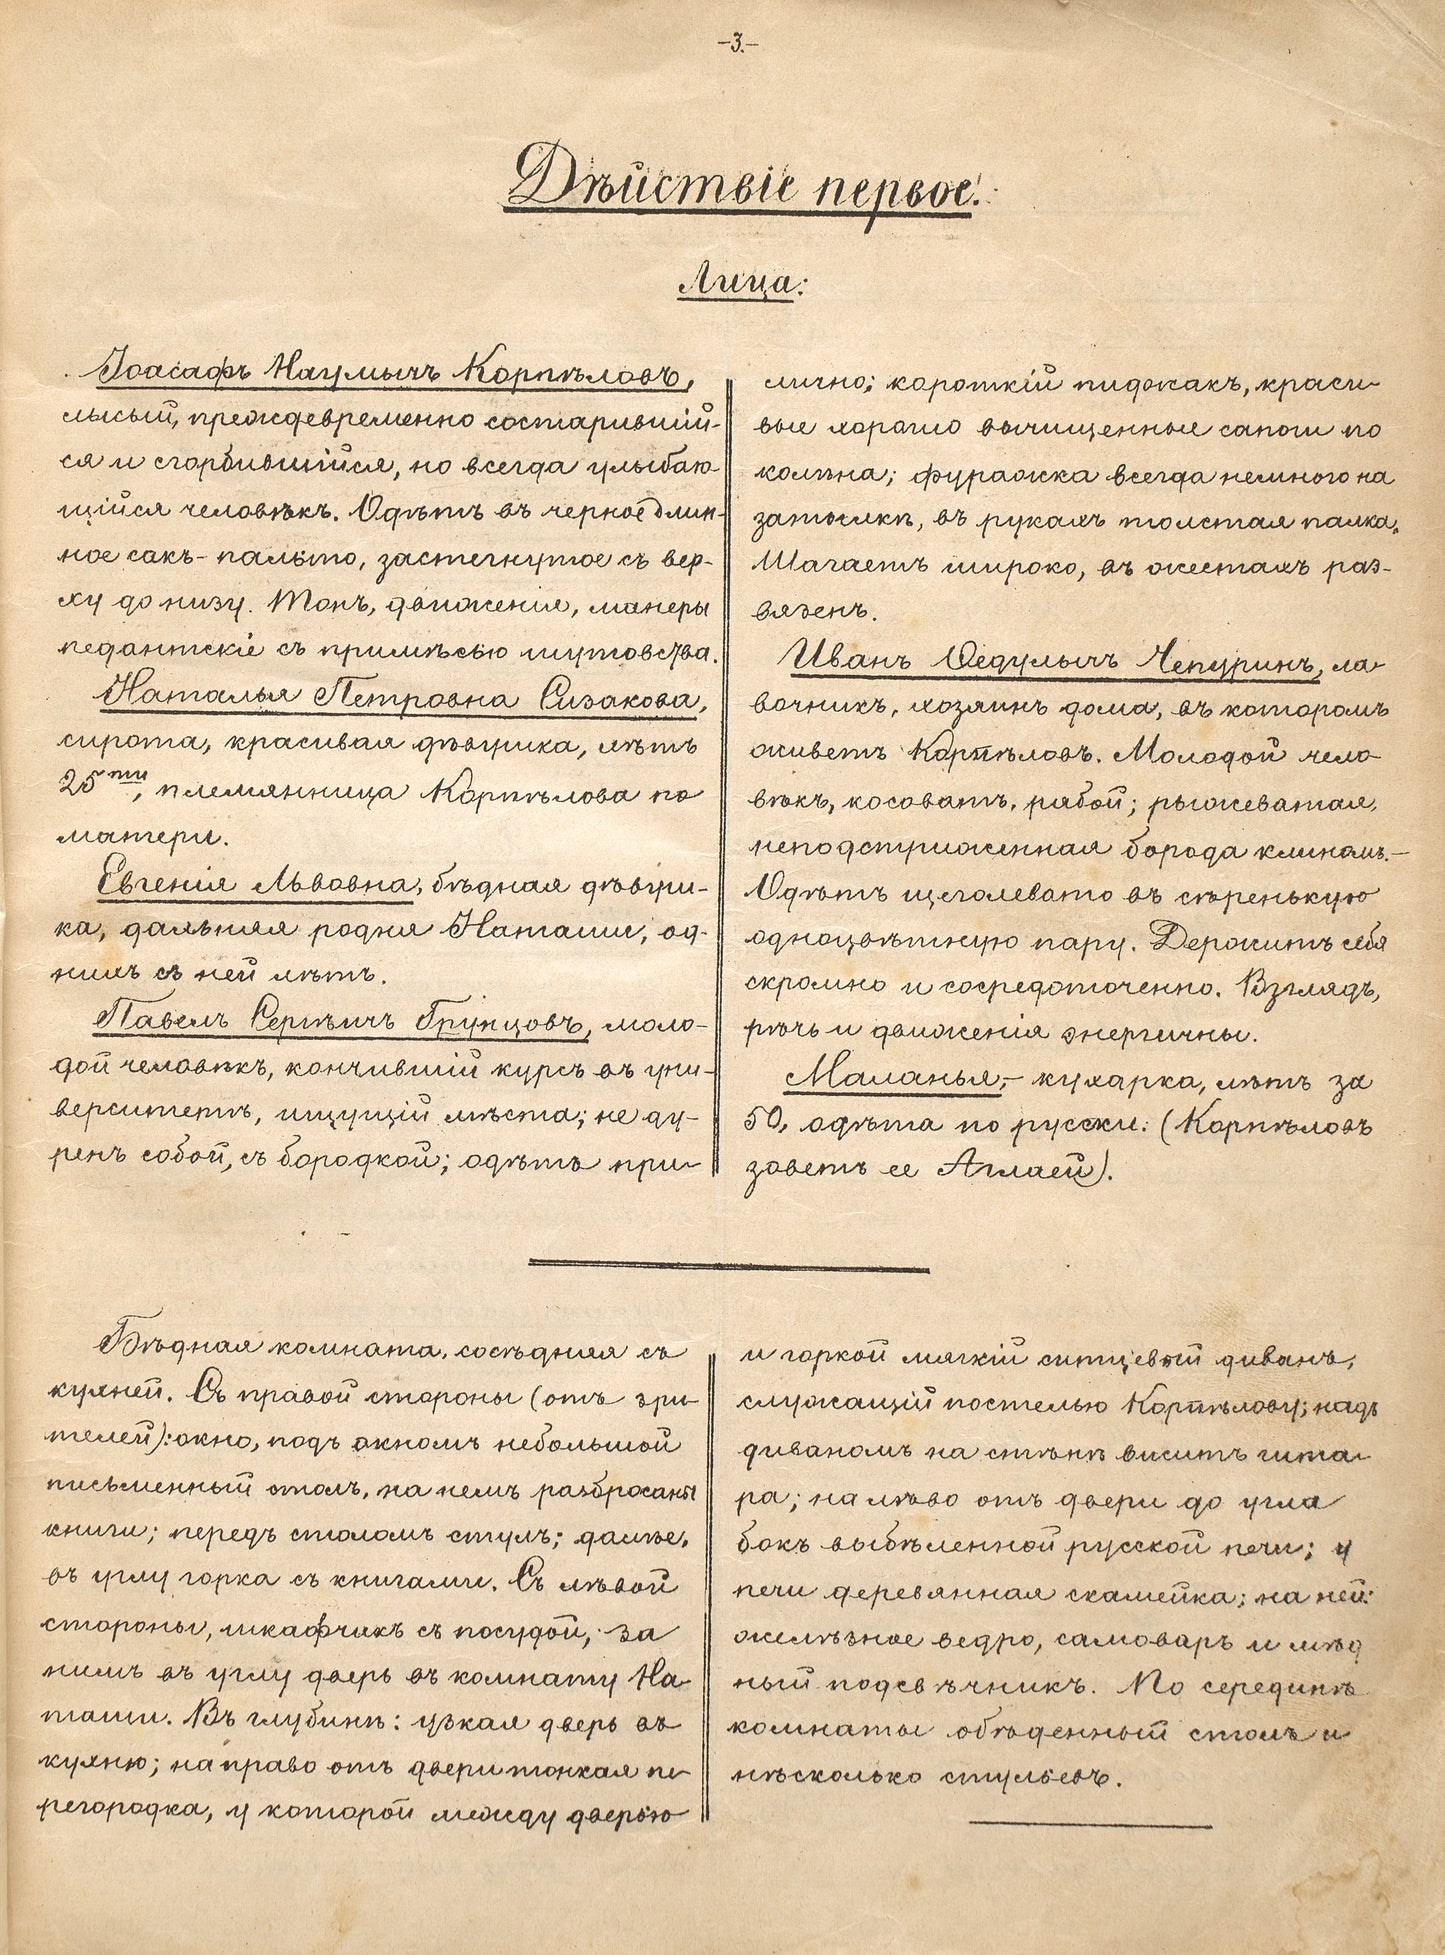 -3.-
Дѣйствіе первое.
Лица:
Іоасафъ Наумычъ Корпѣловъ,
лысый, преждевременно состарившій-
ся и сгорбившійся, но всегда улыбаю-
щійся человѣкъ. Одѣтъ въ черное длин-
ное сакъ-пальто, застегнутое съ вер-
ху до низу. Тонъ, движенія, манеры
педантскіе съ примѣсью шутовства.
Наталья Петровна Сизакова,
сирота, красивая дѣвушка, лѣтъ
25ти, племянница Корпѣлова по
матери.
Евгенія Львовна, бѣдная дѣвуш-
ка, дальняя родня Наташи, од-
нихъ съ ней лѣтъ.
Павелъ Сергѣичъ Грунцовъ, моло-
дой человѣкъ, кончившій курсъ въ уни-
верситетѣ, ищущій мѣста; не ду-
ренъ собой, съ бородкой; одѣтъ при-
лично; короткій пиджакъ, краси-
вые хорошо вычищенные сапоги по
колѣна; фуражка всегда немного на
затылкѣ, въ рукахъ толстая палка.
Шагаетъ широко, въ жестахъ раз-
вязенъ.
Иванъ Ѳедулычъ Чепуринъ, ла-
вочникъ, хозяинъ дома, въ которомъ
живетъ Корпѣловъ. Молодой чело-
вѣкъ, косоватъ, рябой; рыжеватая,
неподстриженная борода клиномъ.-
Одѣтъ щеголевато въ сѣренькую
одноцвѣтную пару. Держитъ себя
скромно и сосредоточенно. Взглядъ,
рѣчь и движенія энергичны.
Маланья,- кухарка, лѣтъ за
50, одѣта по русски. (Корпѣловъ
зоветъ ее Аглаей).
Бѣдная комната, сосѣдняя съ
кухней. Съ правой стороны (отъ зри-
телей): окно, подъ окномъ небольшой
письменный столъ, на немъ разбросаны
книги; передъ столомъ стулъ; далѣе,
въ углу горка съ книгами. Съ лѣвой
стороны, шкафчикъ съ посудой, за
нимъ въ углу дверь въ комнату На-
таши. Въ глубинѣ: узкая дверь въ
кухню; на право отъ двери тонкая пе-
регородка, у которой между дверью
и горкой мягкій ситцевый диванъ,
служащій постелью Корпѣлову; надъ
диваномъ на стѣнѣ виситъ гита-
ра; на лѣво отъ двери до угла
бокъ выбѣленной русской печи; у
печи деревянная скамейка; на ней:
желѣзное ведро, самоваръ и мѣд
ный подсвѣчникъ. По серединѣ
комнаты обѣденный столъ и
нѣсколько стульевъ.